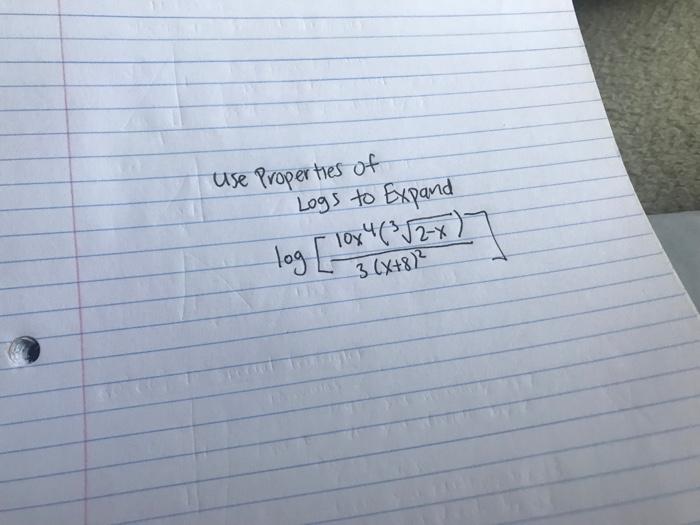 Use Properties of
Logs to Expand
log [ 10x⁴(³√2-x) / 3(x+8)² ]